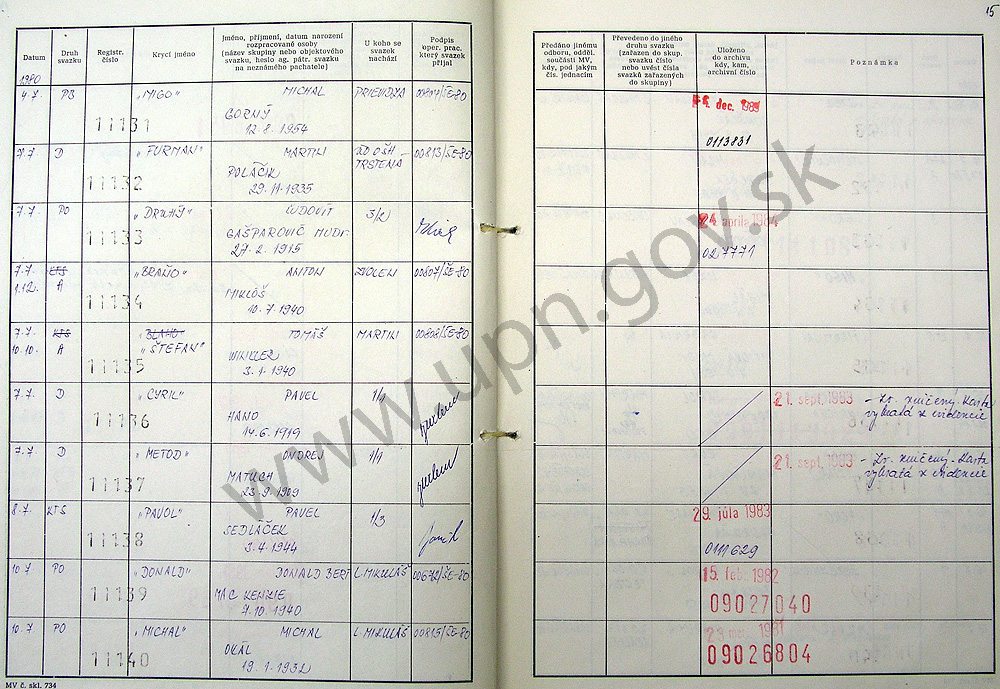 15
Datum
Druh svazku
Registr. číslo
Krycí jméno
Jméno, příjmení, datum narození rozpracované osoby (název skupiny nebo objektového svazku, heslo ag. pátr. svazku na neznámého pachatele)
U koho se svazek nachází
Podpis oper. prac. který svazek přijal
Předáno jinému odboru, odděl. součásti MV, kdy, pod jakým čís. jednacím
Převedeno do jiného druhu svazku (zařazen do skup. svazku číslo nebo uvést čísla svazků zařazených do skupiny)
Uloženo do archivu kdy, kam, archivní číslo
Poznámka
1980
4.7. PB 11131 „MIGO" MICHAL PRIEVIDZA
GORNÝ
12.8.1954
dec. 1985
0113831
7.7 D 11132 „FURMAN" MARTIN TRSTENÁ 00813/ŠE-80
POLÁČIK
29.11.1935
7.7. PO 11133 „DRUHÝ" ĽUDOVÍT 3/2
GAŠPAROVIČ MUDr
27.2.1915
24. apríla 1984
027771
7.7. KTS 11134 „BRAŇO" ANTON ZVOLEN 00807/ŠE-80
1.12. A
MIKLÓŠ
10.7.1940
7.7. KTS 11135 „BLAHO" TOMÁŠ MARTIN 00808/ŠE-80
10.10. A „ŠTEFAN"
WINKLER
3.1.1940
7.7. D 11136 „CYRIL" PAVEL 1/1
HANO
14.6.1919
21. sept. 1983 – Zv. zničený. Karta
vybratá z evidencie
7.7 D 11137 „METOD" ONDREJ 1/1
MATUCH
23.9.1909
21. sept. 1983 – Zv. zničený. Karta
vybratá z evidencie
8.7. KTS 11138 „PAVOL" PAVEL 1/3
SEDLÁČEK
3.4.1944
29. júla 1983
0111629
10.7 PO 11139 „DONALD" DONALD BERT L. MIKULÁŠ 00672/ŠE-80
MAC KENZIE
7.10.1940
15. feb. 1982
09027040
10.7 PO 11140 „MICHAL" MICHAL L. MIKULÁŠ 00815/ŠE-80
OKÁL
19.1.1932
1981
09026804
MV č. skl. 734
www.upn.gov.sk